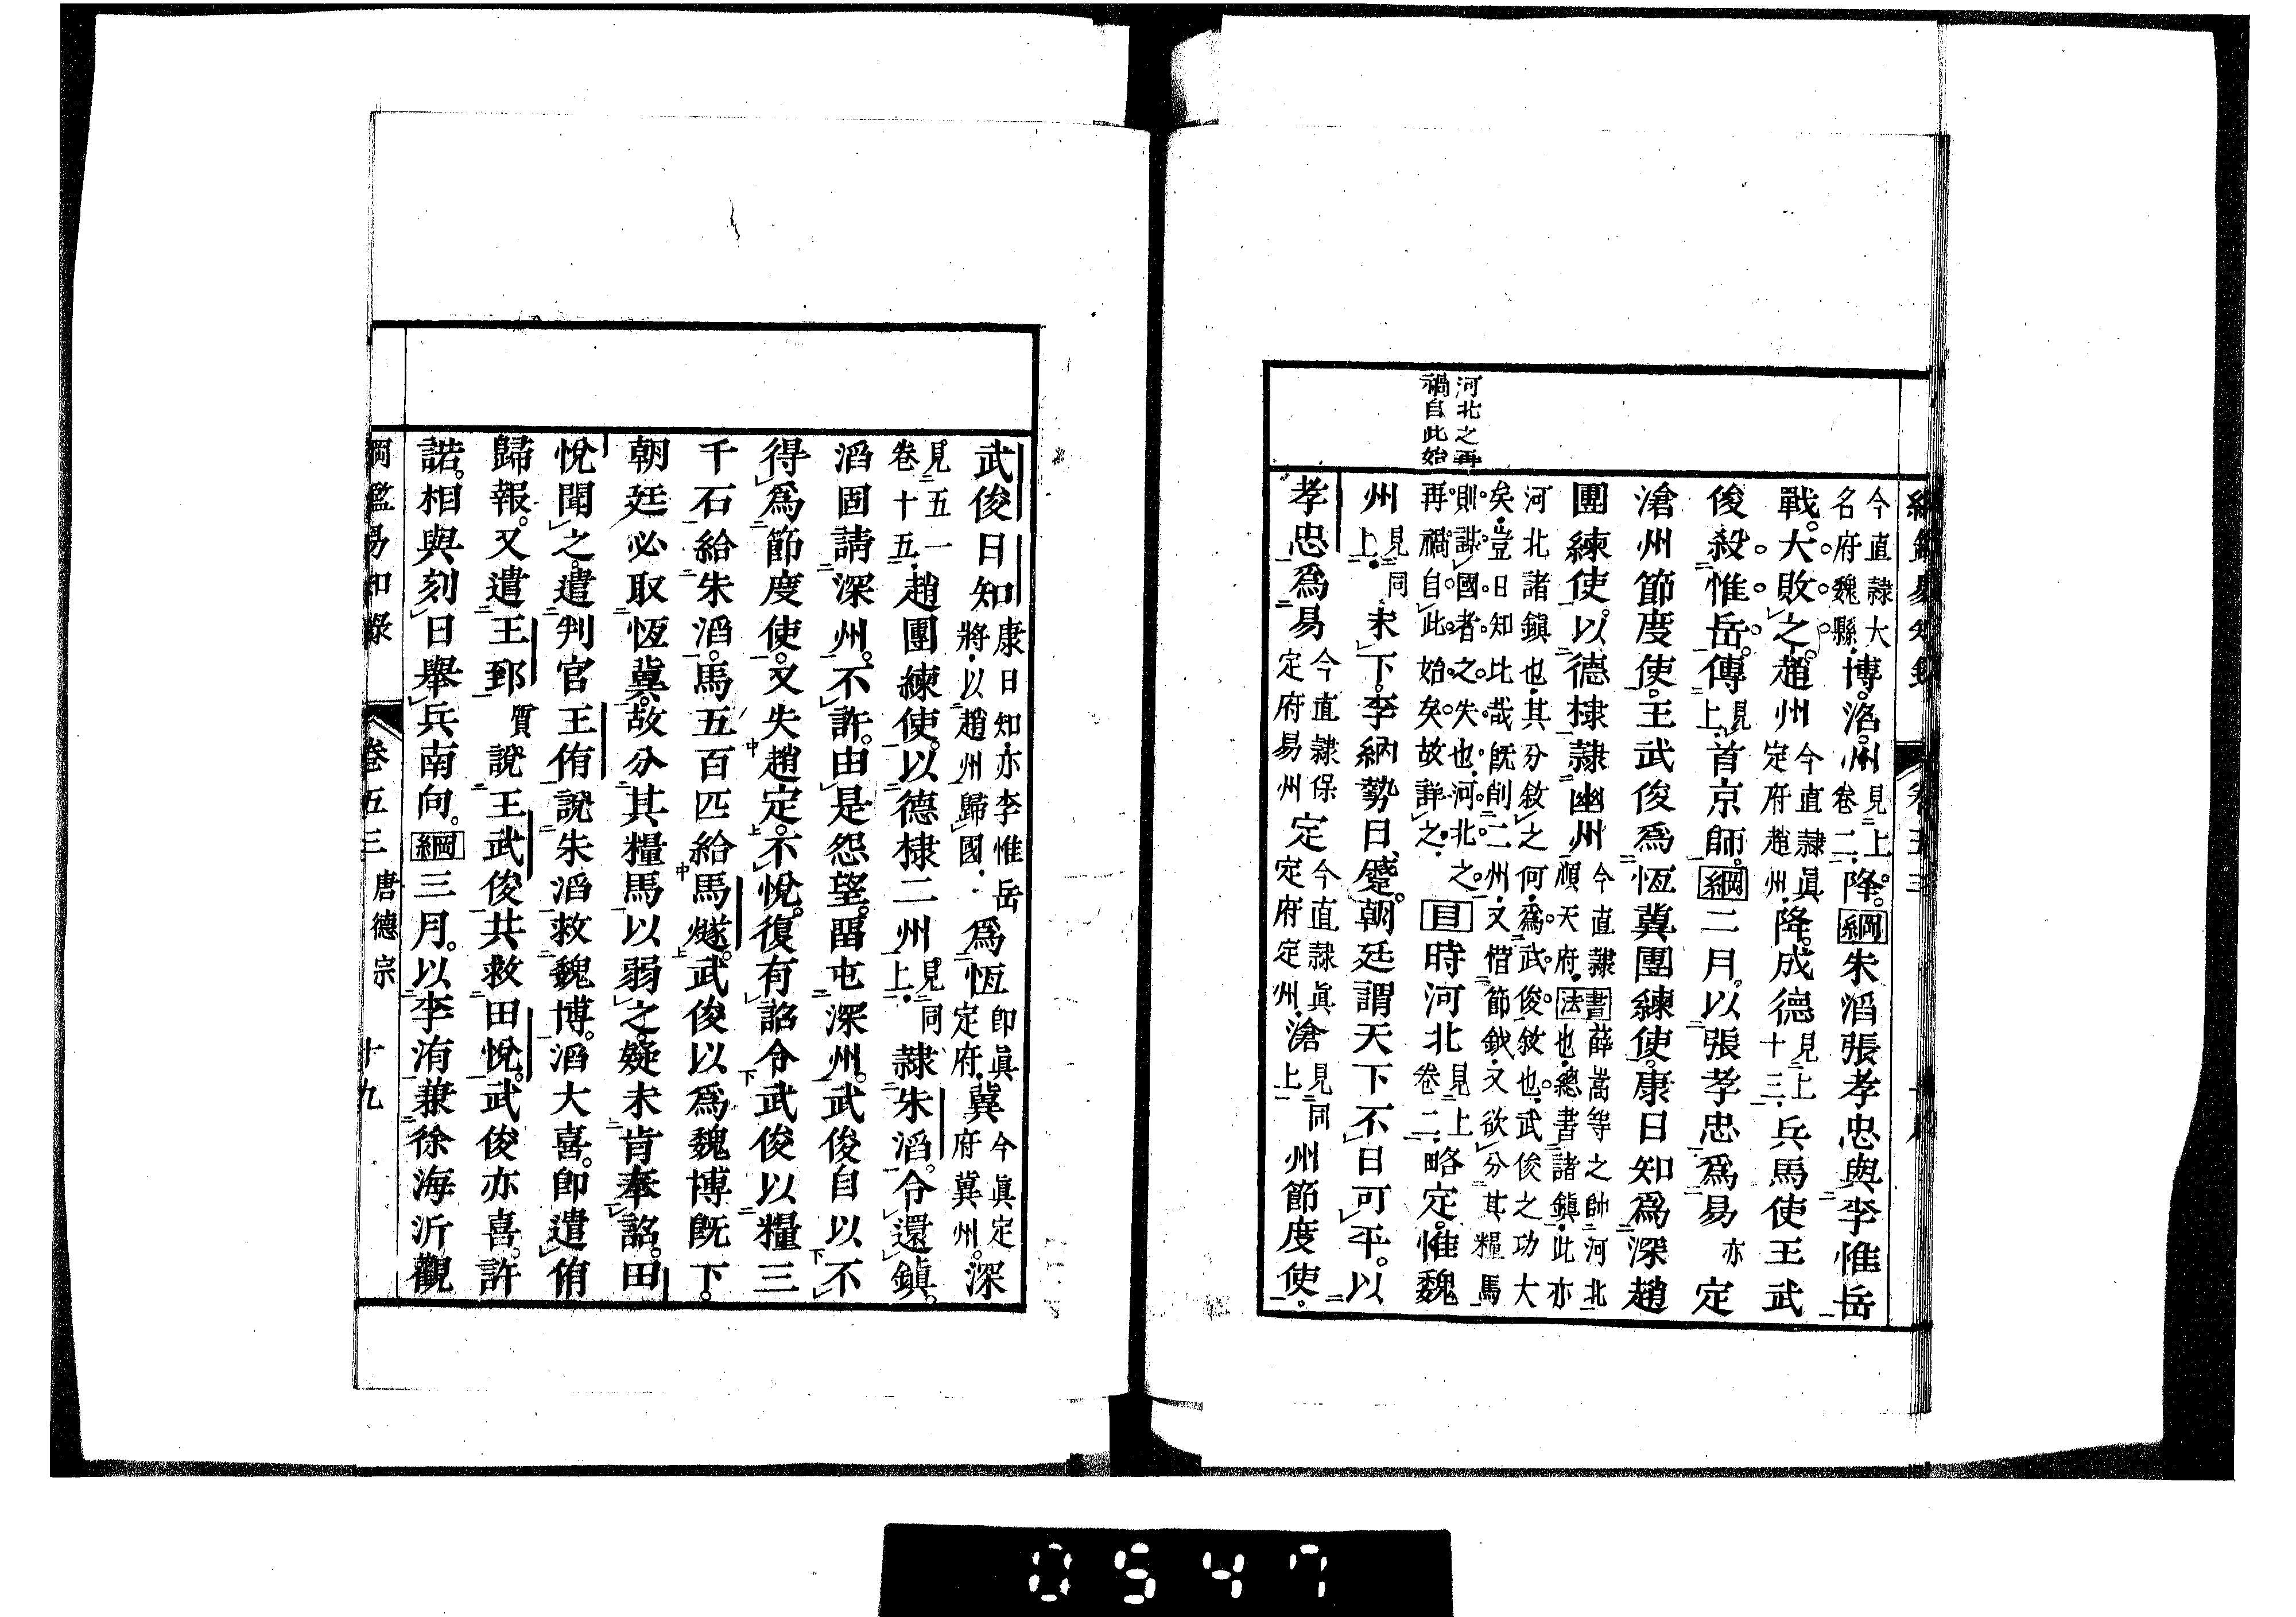 河北之再
禍自此始
今直隷大
名府魏縣博洛州見上卷二降綱朱滔張孝忠與李惟岳
戰大敗之趙州今直隷眞定府趙州降成德見上十三兵馬使王武
俊殺惟岳傳見上首京師綱二月以張孝忠爲易亦定
滄州節度使王武俊爲恆冀團練使康日知爲深趙
團練使以德棣隷幽州今直隷順天府書法薛嵩等之帥河北也總書諸鎭此亦
河北諸鎭也其分敘之何爲武俊敘也武俊之功大
矣豈日知比哉既削二州又惜節鉞又欲分其糧馬
則謀國者之失也河北之
再禍自此始矣故詳之目時河北見上卷二略定惟魏
州見同上未下李納勢日蹙朝廷謂天下不日可平以
孝忠爲易今直隷保定府易州定今直隷眞定府定州滄見同上州節度使
綱鑑易知錄 卷五三
武俊日知康日知亦李惟岳將以趙州歸國爲恆卽眞定府冀今眞定府冀州深
見五一卷十五趙團練使以德棣二州見同上隷朱滔令還鎭
滔固請深州不許由是怨望畱屯深州武俊自以不
得爲節度使又失趙定不悅復有詔令武俊以糧三
千石給朱滔馬五百匹給馬燧武俊以爲魏博既下
朝廷必取恆冀故分其糧馬以弱之疑未肯奉詔田
悅聞之遣判官王侑說朱滔救魏博滔大喜卽遣侑
歸報又遣王郅質說王武俊共救田悅武俊亦喜許
諾相與刻日舉兵南向綱三月以李洧兼徐海沂觀
綱鑑易知錄 卷五三 唐德宗 十九
0547